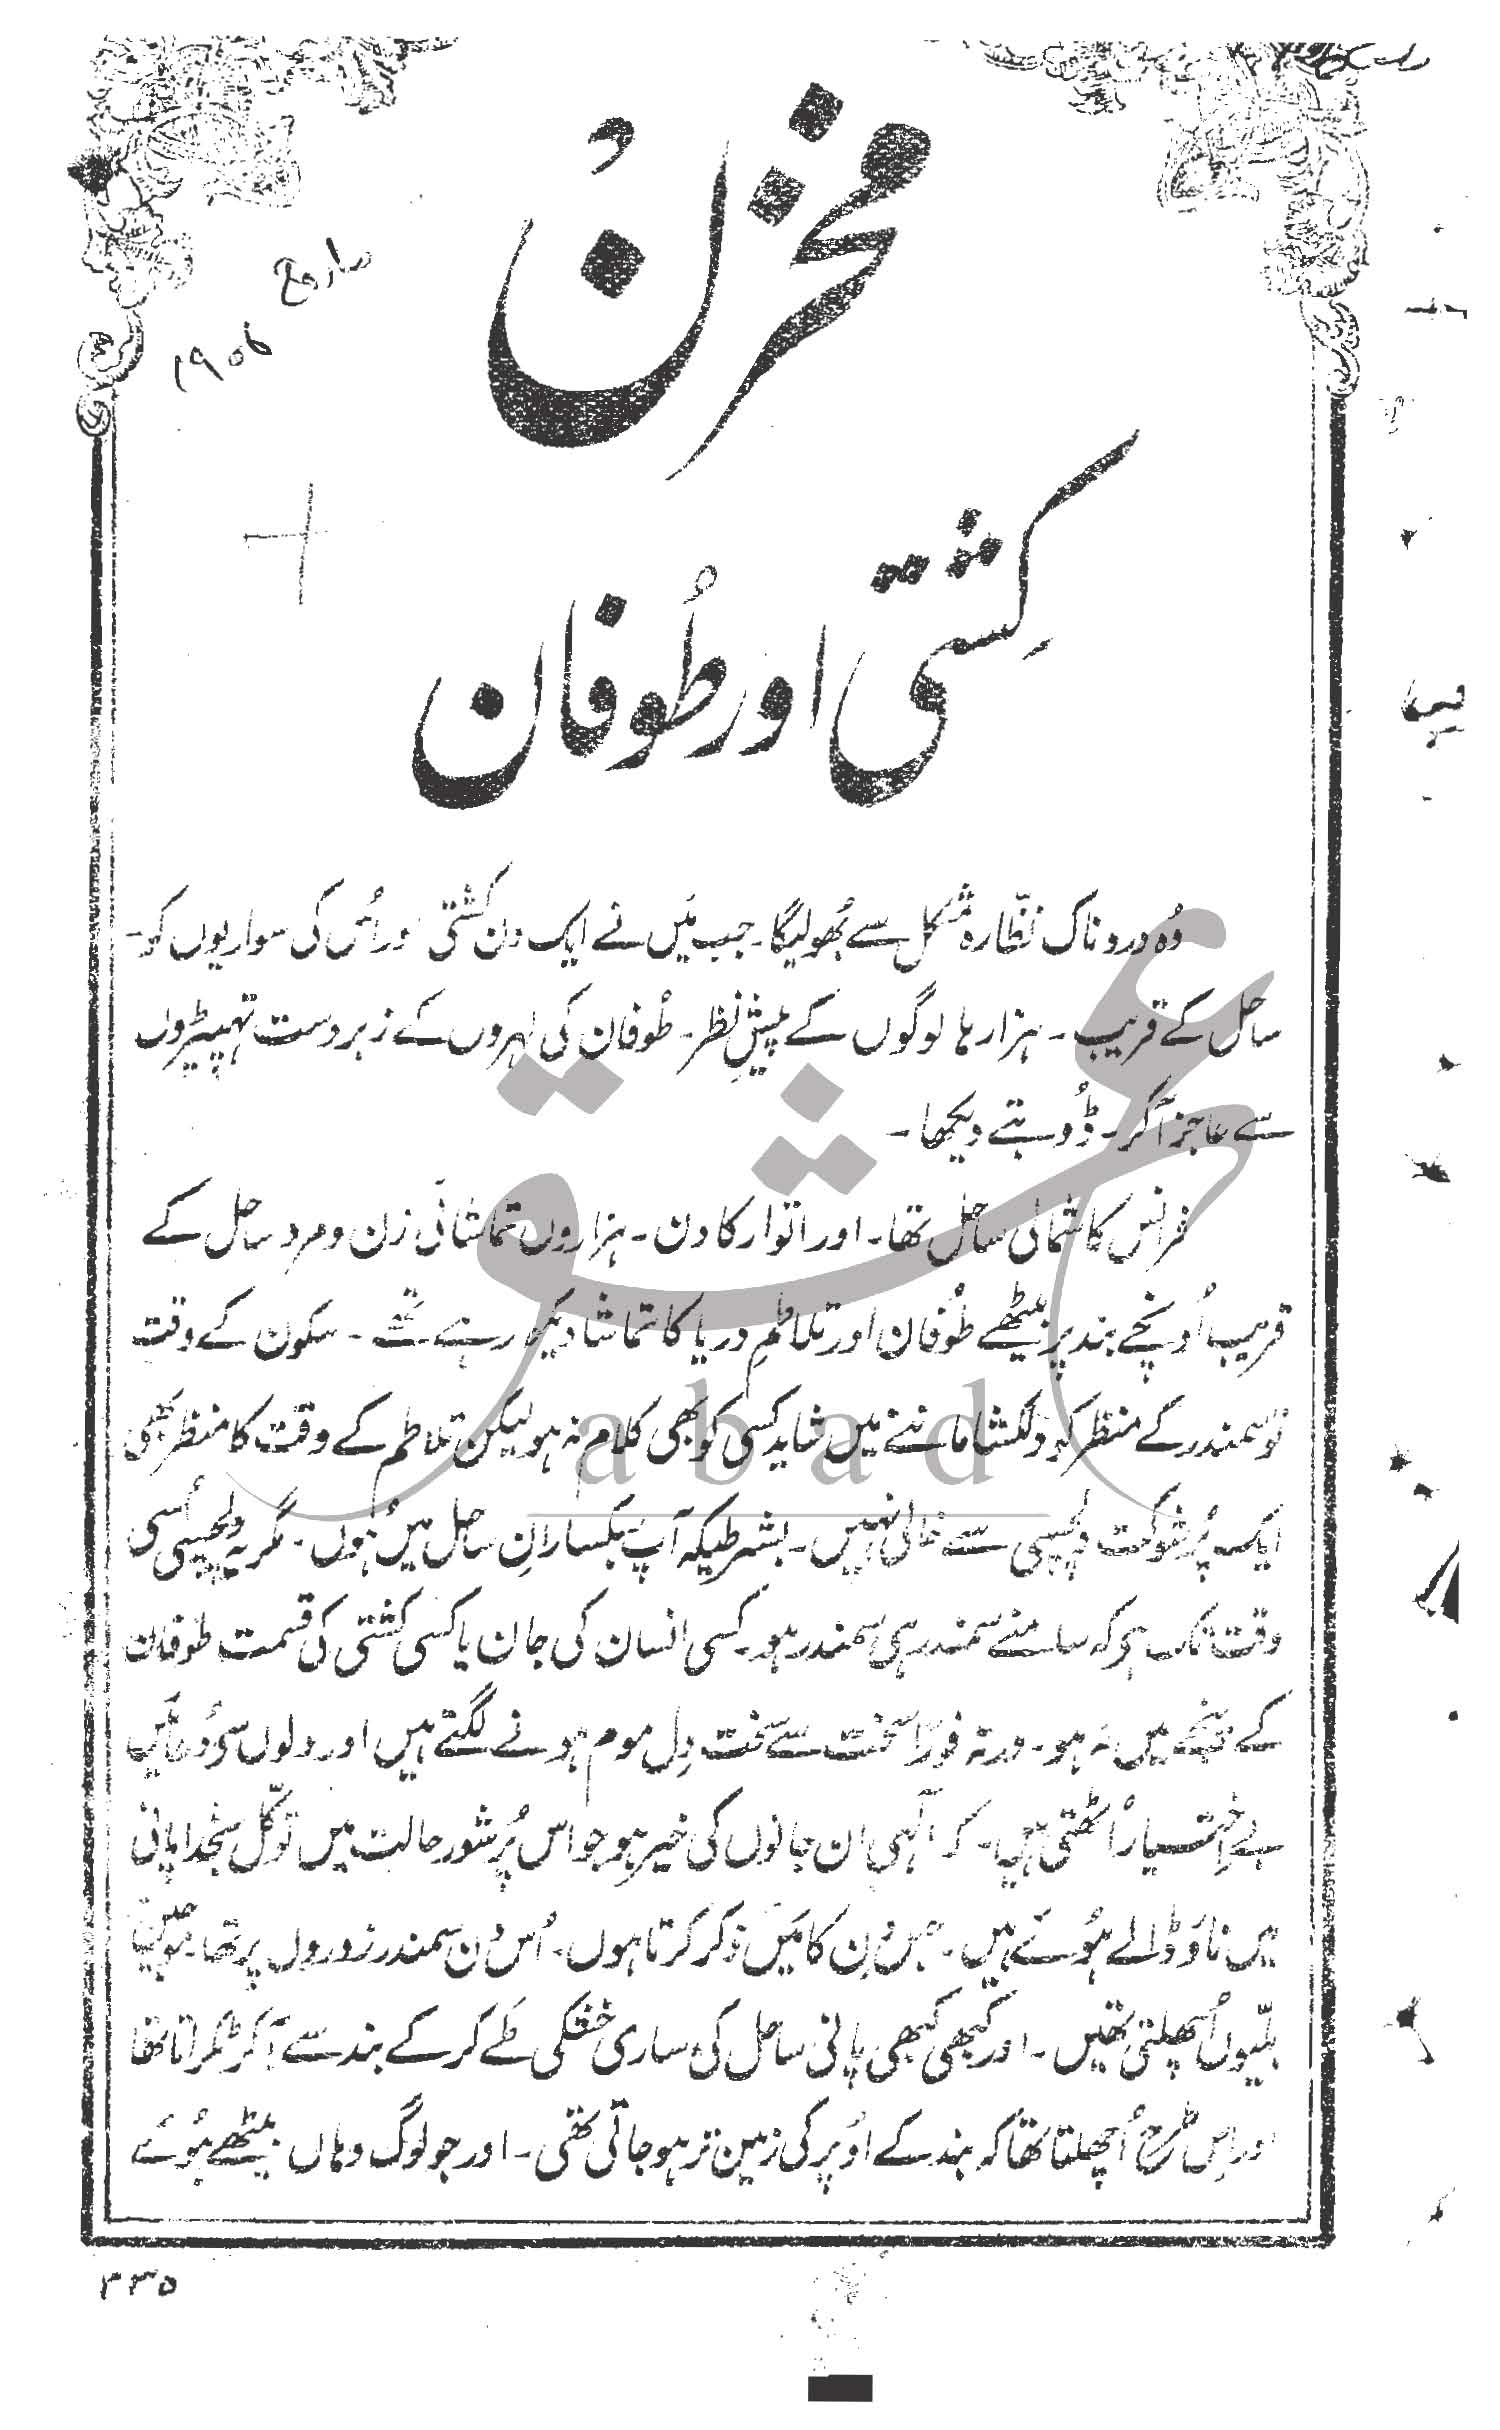 مخزنُ
مارچ
۱۹۰۶
کِشتی اور طُوفان
وُہ دردناک نظّارہ مشکل سے بھُولیگا۔ جب مَیں نے ایک دن کشتی اور اُس کی سواریوں کو۔
ساحل کے قریب۔ ہزارہا لوگوں کے پیشِ نظر۔ طُوفان کی لہروں کے زبردست تھپیڑوں
سے عاجز آکر۔ ڈُوبتے دیکھا۔
فرانس کا شمالی ساحل تھا۔ اور اتوار کا دن۔ ہزاروں تماشائی زن و مرد ساحل کے
قریب اُونچے بند پر بیٹھے طُوفان اور تلاطمِ دریا کا تماشا دیکھ رہے تھے۔ سکون کے وقت
تو سمندر کے منظر کو دلکشا ماننے میں شاید کسی کو بھی کلام نہ ہو لیکن تلاطم کے وقت کا منظر بھی
ایک پُرشوکت دلچسپی سے خالی نہیں۔ بشرطیکہ آپ سبکسارانِ ساحل میں ہُوں۔ مگر یہ دلچسپی اُسی
وقت تک ہی کہ سامنے سمندر ہی سمندر ہو۔ کسی انسان کی جان یا کسی کشتی کی قسمت طوفان
کے پنجے میں نہ ہو۔ ورنہ فوراً سخت سے سخت دِل موم ہونے لگتے ہیں اور دلوں سی دُعائیں
بے اختیار اُٹھتی ہیں۔ کہ الٰہی ان جانوں کی خیر ہو جو اس پُر شور حالت میں توکّل بخدا پانی
میں ناؤ ڈالے ہُوئے ہیں۔ جس دِن کا مَیں ذکر کرتا ہوں۔ اُس دن سمندر زوروں پر تھا۔ موجیں
بلّیوں اُچھلتی تھیں۔ اور کبھی کبھی پانی ساحل کی ساری خشکی طَے کر کے بند سے آکر ٹکراتا تھا
اور اِس طرح اُچھلتا تھا کہ بند کے اوپر کی زمین تر ہو جاتی تھی۔ اور جو لوگ وہاں بیٹھے ہُوئے
۳۳۵